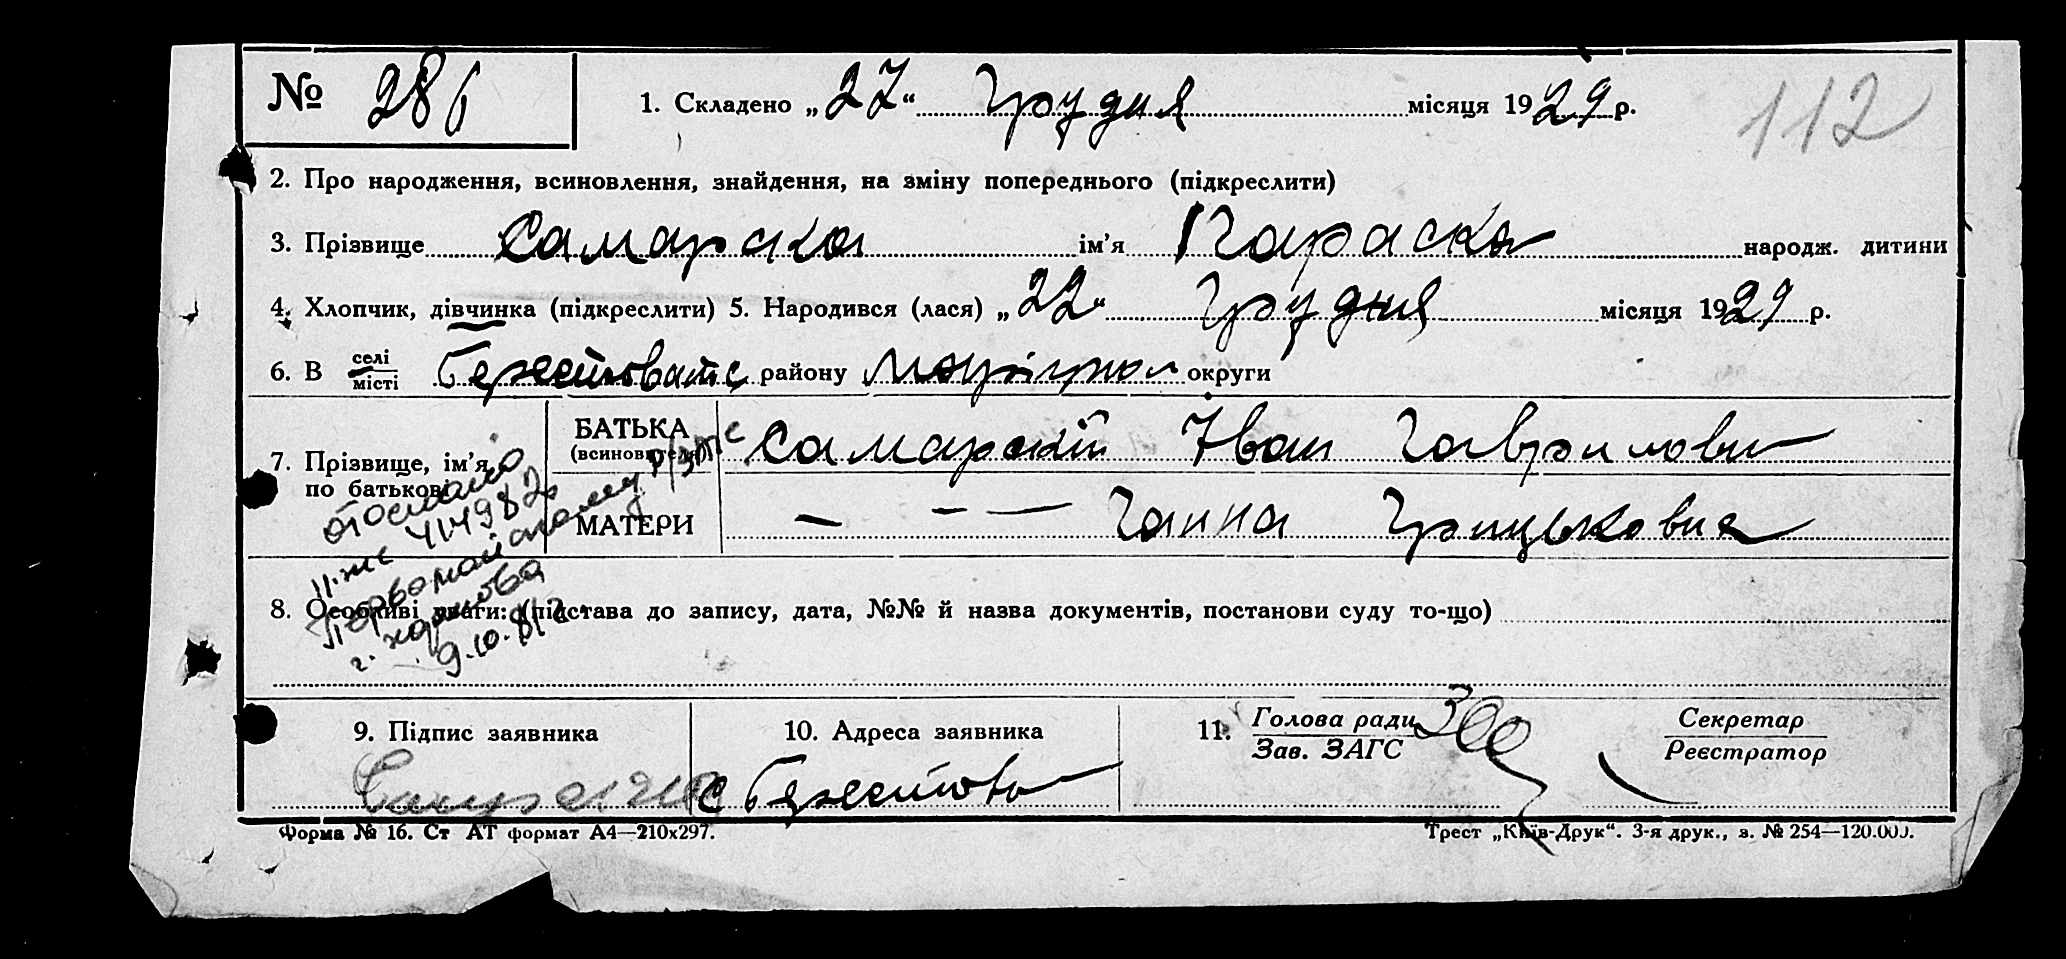 № 286 1. Складено „27“ Грудня місяця 1929 р. 112
2. Про народження, всиновлення, знайдення, на зміну попереднього (підкреслити)
3. Прізвище Самарска ім’я Параска народж. дитини
4. Хлопчик, дівчинка (підкреслити) 5. Народився (лася) „22“ Грудня місяця 1929 р.
6. В селі місті району округи
7. Прізвище, ім’я по батькові
БАТЬКА (всиновителя) Самарский Іван Гаврилови
МАТЕРИ — — — Ганна Грицьковна
отослано
414982
Первомайскому
г. Жданова
8. Особливі уваги: (підстава до запису, дата, №№ й назва документів, постанови суду то-що)
9. Підпис заявника 10. Адреса заявника 11. Голова ради Зав. ЗАГС Секретар Реєстратор
с Берестова
Форма № 16. Ст АТ формат А4—210х297. Трест „Київ-Друк“. 3-я друк., з. № 254—120.000.